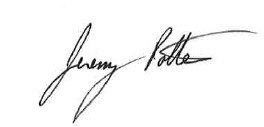 Jeremy Potter